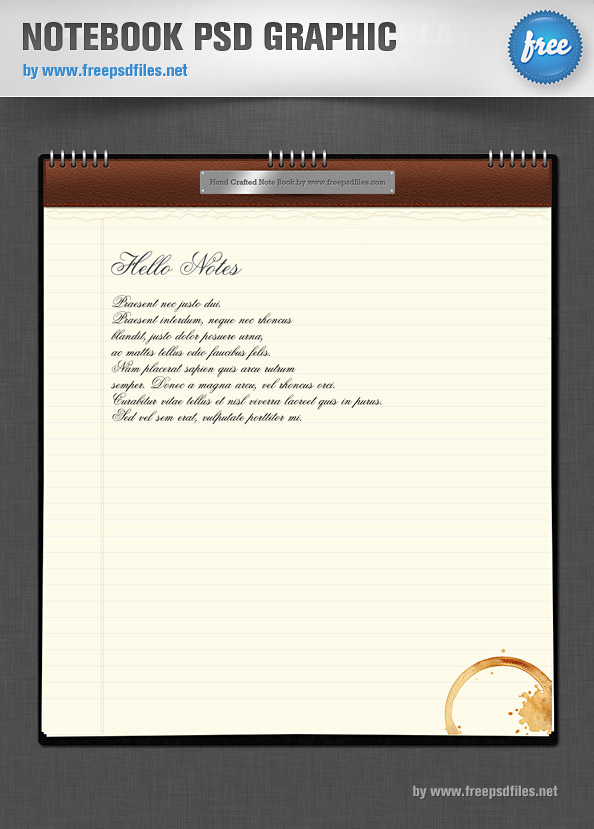 NOTEBOOK PSD GRAPHIC
by www.freepsdfiles.net
free
Hand Crafted Note Book by www.freepsdfiles.com
Hello Notes
Praesent nec justo dui.
Praesent interdum, neque nec rhoncus
blandit, justo dolor posuere urna,
ac mattis tellus odio faucibus felis.
Nam placerat sapien quis arcu rutrum
semper. Donec a magna arcu, vel rhoncus orci.
Curabitur vitae tellus et nisl viverra laoreet quis in purus.
Sed vel sem erat, vulputate porttitor mi.
by www.freepsdfiles.net